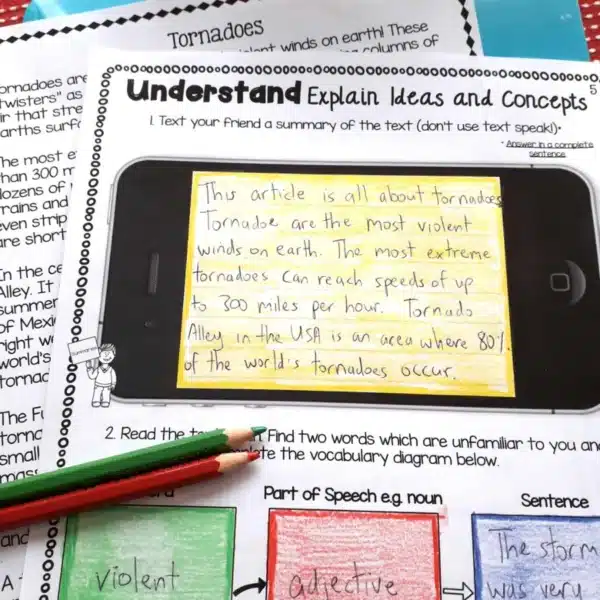 Tornadoes
winds on earth! These
columns of
ornadoes are
twisters" as
ir that stre
arths surf
he most e
han 300 m
dozens of
rains and
ven strip
re short
n the ce
Alley. It
summer
of Mexi
right w
world's
tornad
The Fu
torna
small
mass
and
A
5
Understand Explain Ideas and Concepts
1. Text your friend a summary of the text (don't use text speak!).
* Answer in a complete
sentence
This article is all about tornadoes
Tornadoe are the most violent
winds on earth. The most extreme
tornadoes can reach speeds of up
to 300 miles per hour. Tornado
Alley in the USA is an area where 80%
of the world's tornadoes occur.
2. Read the Find two words which are unfamiliar to you an
the vocabulary diagram below.
Part of Speech e.g. noun
Sentence
violent
adjective
The storm
was very